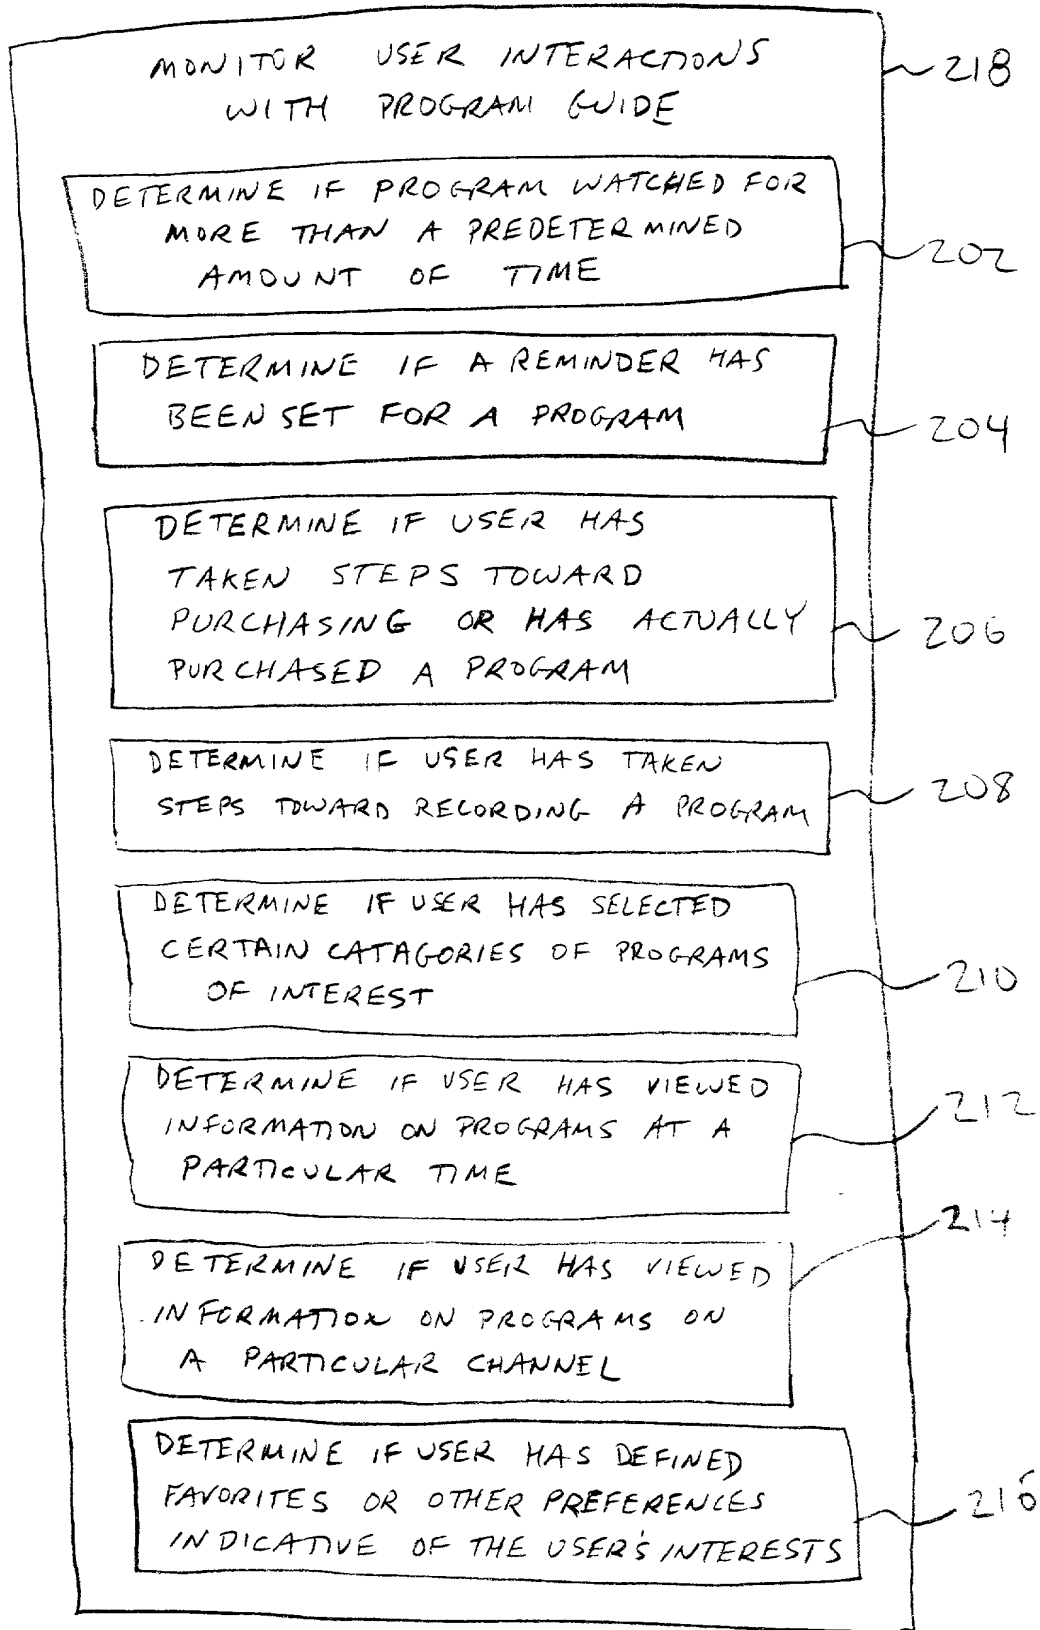 MONITOR USER INTERACTIONS
WITH PROGRAM GUIDE
218
DETERMINE IF PROGRAM WATCHED FOR
MORE THAN A PREDETERMINED
AMOUNT OF TIME
202
DETERMINE IF A REMINDER HAS
BEEN SET FOR A PROGRAM
204
DETERMINE IF USER HAS
TAKEN STEPS TOWARD
PURCHASING OR HAS ACTUALLY
PURCHASED A PROGRAM
206
DETERMINE IF USER HAS TAKEN
STEPS TOWARD RECORDING A PROGRAM
208
DETERMINE IF USER HAS SELECTED
CERTAIN CATAGORIES OF PROGRAMS
OF INTEREST
210
DETERMINE IF USER HAS VIEWED
INFORMATION ON PROGRAMS AT A
PARTICULAR TIME
212
DETERMINE IF USER HAS VIEWED
INFORMATION ON PROGRAMS ON
A PARTICULAR CHANNEL
214
DETERMINE IF USER HAS DEFINED
FAVORITES OR OTHER PREFERENCES
INDICATIVE OF THE USER'S INTERESTS
216